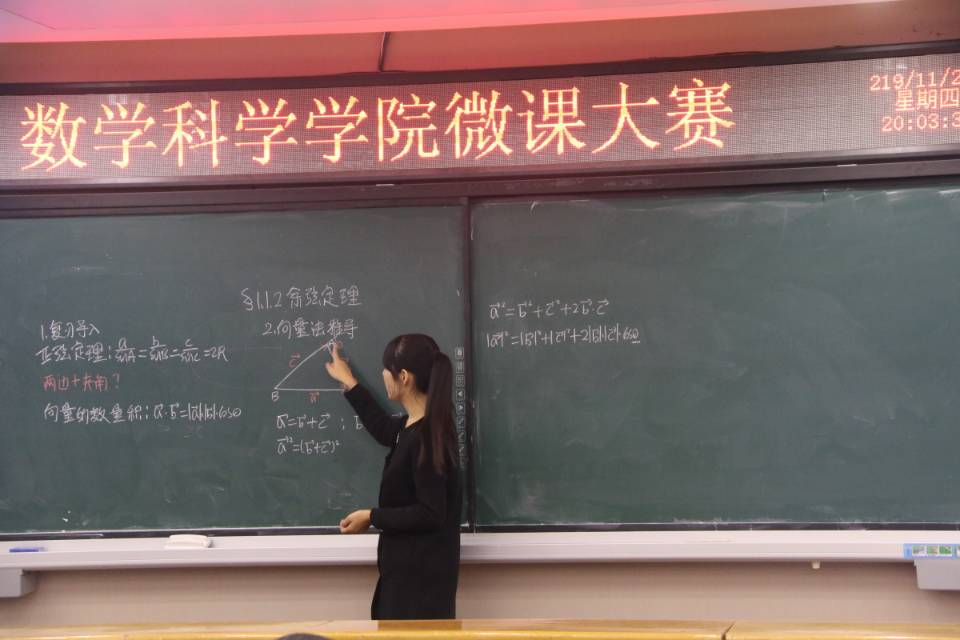 数学科学学院微课大赛
219/11/2
星期四
20:03:3
§1.1.2 余弦定理
1.复习导入
正弦定理：a/sinA=b/sinB=c/sinC=2R
两边+夹角？
向量的数量积：a⃗·b⃗=|a⃗||b⃗|cosθ
2.向量法推导
c⃗
B
a⃗
a⃗=b⃗+c⃗ ；
a⃗²=(b⃗+c⃗)²
a⃗²=b⃗²+c⃗²+2b⃗·c⃗
|a⃗|²=|b⃗|²+|c⃗|²+2|b⃗||c⃗|·cosθ